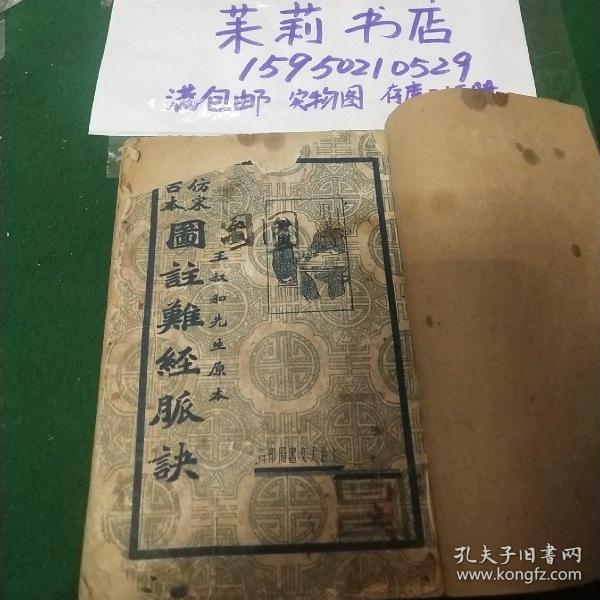 茉莉书店
15950210529
满包邮 实物图
仿宋
古本
圖註難經脈訣
王叔和先生原本
上海大文書局印行
孔夫子旧书网
www.kongfz.com